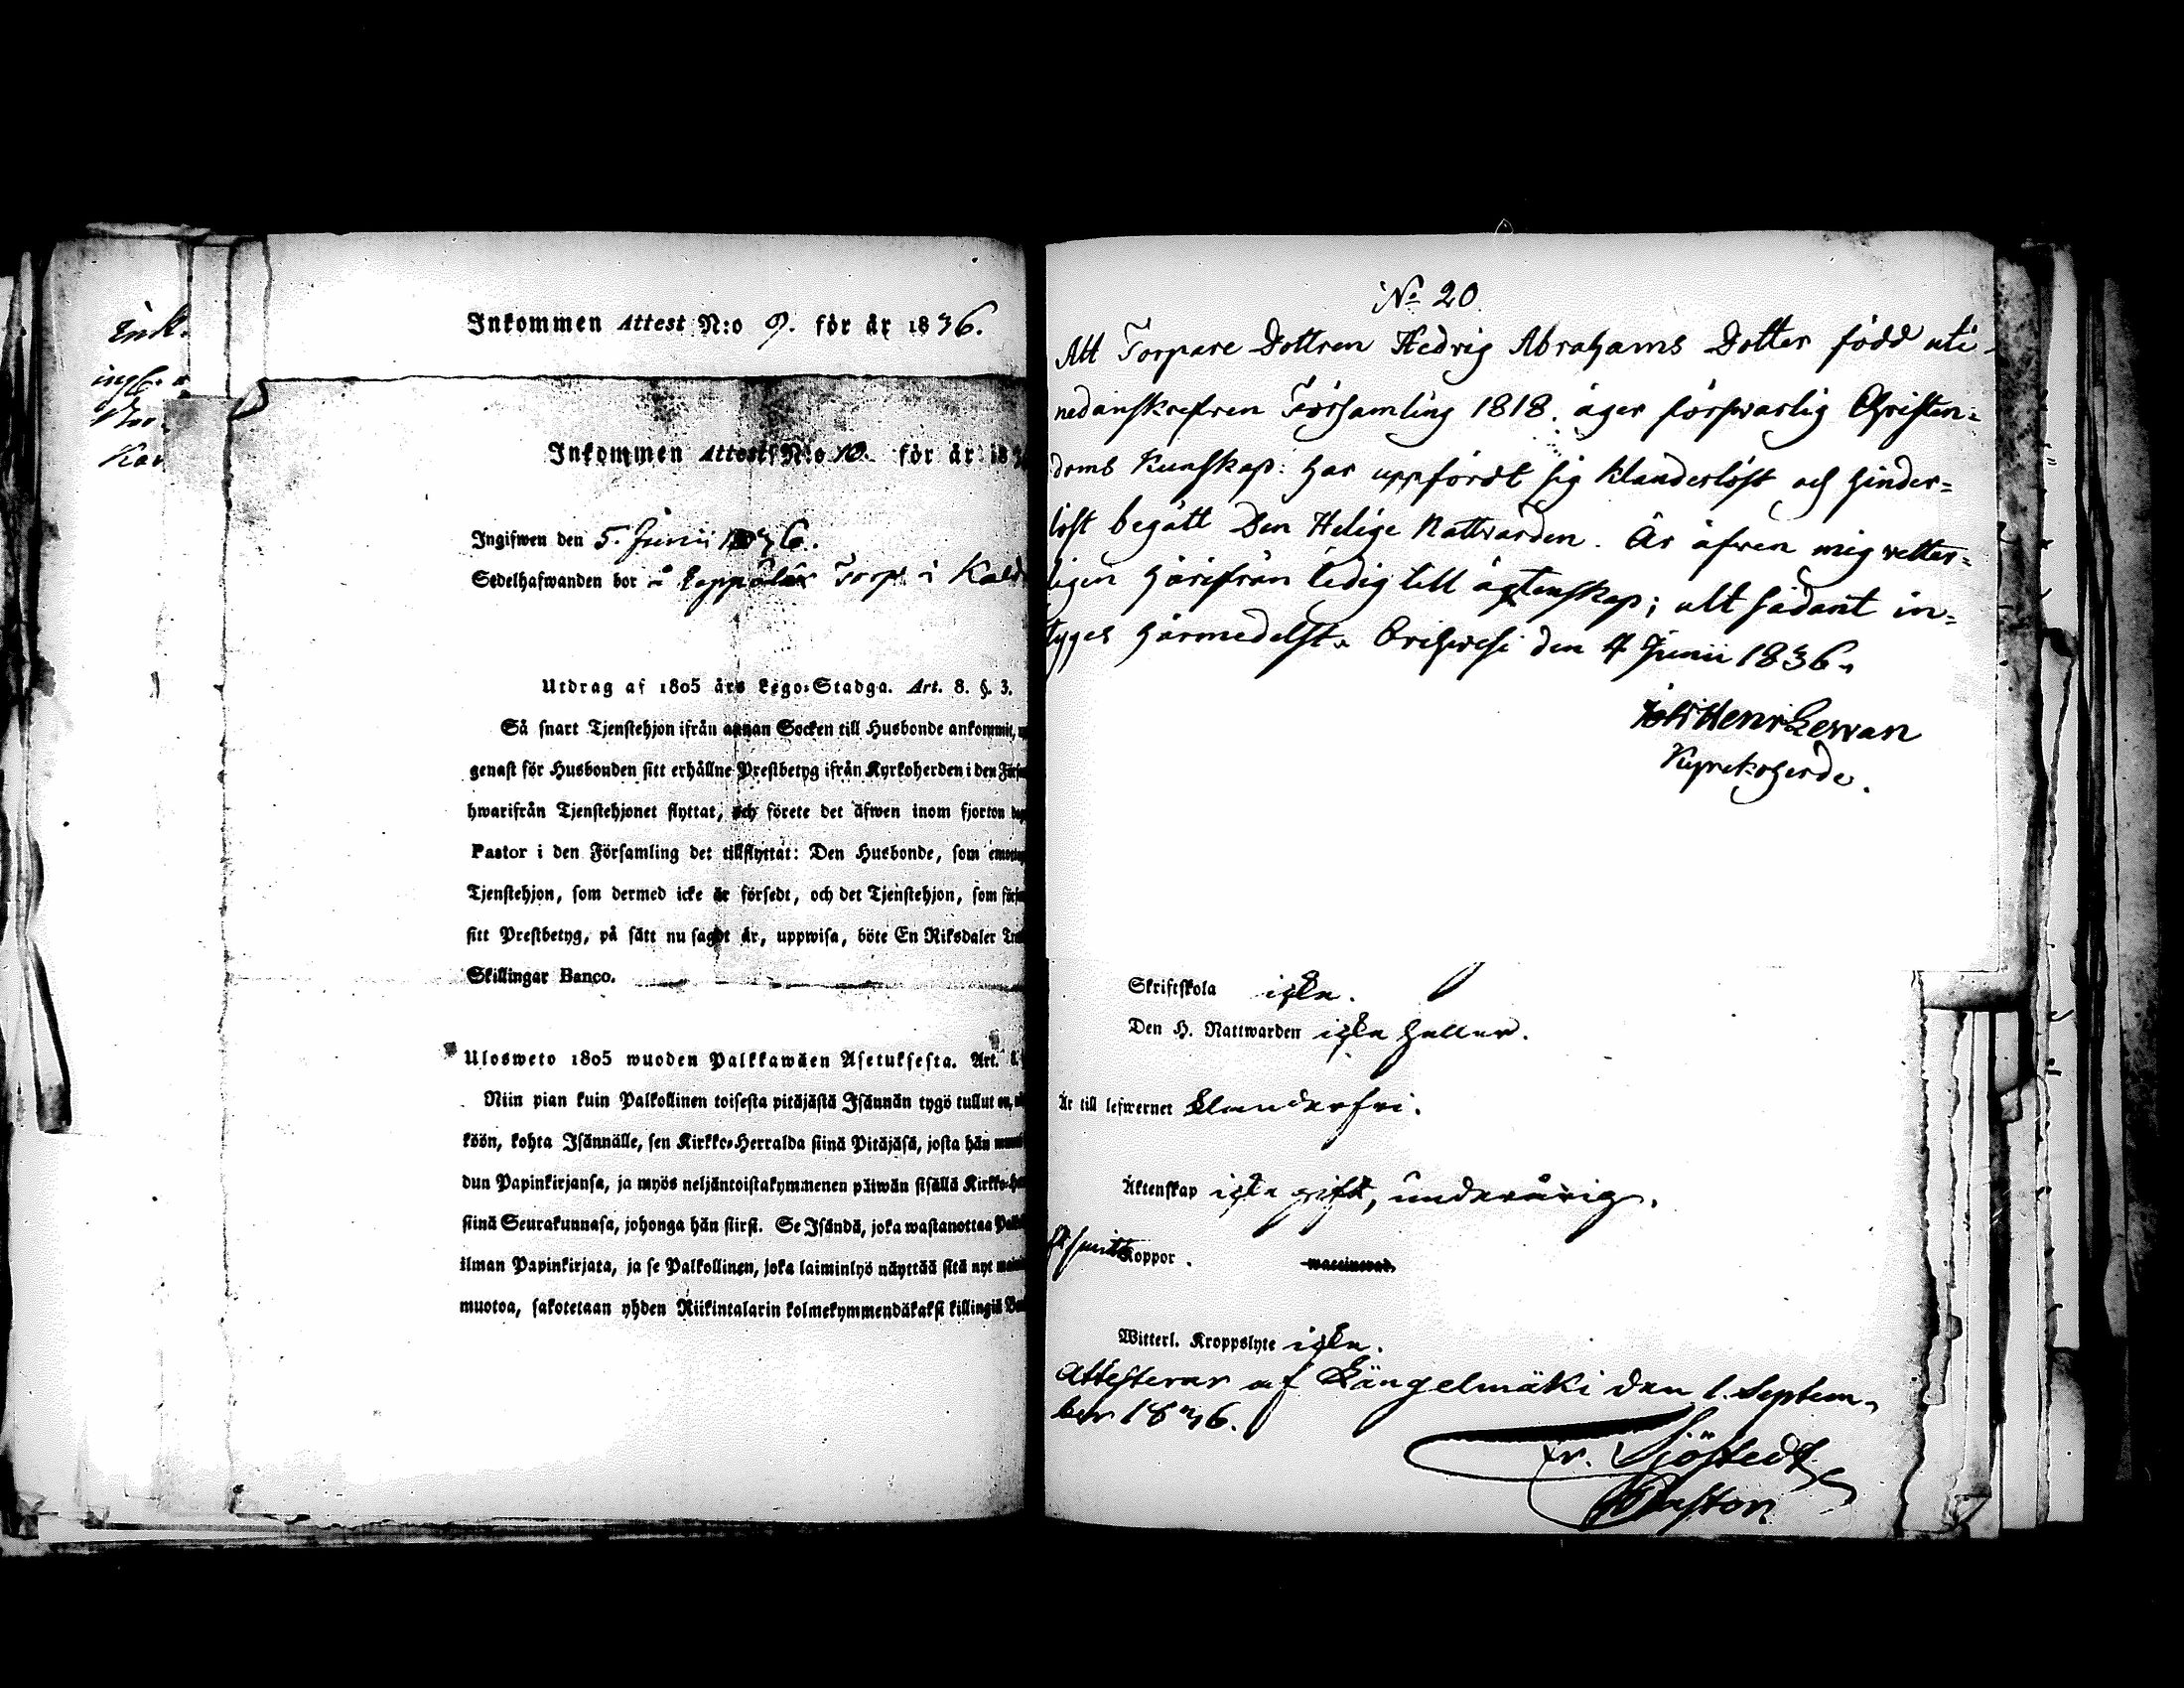 Inkommen Attest N:o 9. för år 1836.
Inkommen Attest N:o 10. för år 183
Ingifwen den 5. Junii 1836.
Sedelhafwanden bor å Torp i
Utdrag af 1805 års Lego-Stadga. Art. 8. §. 3.
Så snart Tjenstehjon ifrån annan Socken till Husbonde ankommit,
genast för Husbonden sitt erhållne Prestbetyg ifrån Kyrkoherden i den
hwarifrån Tjenstehjonet flyttat, och förete det äfwen inom fjorton
Pastor i den Församling det tillflyttat: Den Husbonde, som
Tjenstehjon, som dermed icke är försedt, och det Tjenstehjon, som
sitt Prestbetyg, på sätt nu sagdt är, uppwisa, böte En Riksdaler
Skillingar Banco.
Ulosweto 1805 wuoden Palkkawäen Asetuksesta. Art. 8.
Niin pian kuin Palkollinen toisesta pitäjästä Isännän tygö tullut on,
köön, kohta Isännälle, sen Kirkko-Herralda siinä Pitäjäsä, josta hän
dun Papinkirjansa, ja myös neljäntoistakymmenen päiwän sisällä
siinä Seurakunnasa, johonga hän siirsi. Se Isändä, joka wastanottaa
ilman Papinkirjata, ja se Palkollinen, joka laiminlyö näyttää sitä nyt
muotoa, sakotetaan yhden Riikintalarin kolmekymmendäkaksi killingiä
No 20
Att Torpare Dottren Hedvig Abrahams Dotter född uti
nedanskrefven Församling 1818. äger försvarlig Christen=
doms Kunskap: har uppfördt sig klanderlöst och hinder=
löst begått Den Helige Nattvarden. Är äfven mig vetter=
ligen härifrån ledig till ägtenskap; alt sådant in=
tyges härmedelst. Orihvesi den 4 Junii 1836.
Joh Henr Levvan
Kyrckoherde.
Skriftskola icke.
Den H. Nattwarden icke heller.
Är till lefwernet klanderfri.
Äktenskap icke gift, underårig.
Koppor. waccinerad.
Witterl. Kroppslyte icke.
Attesterar af Längelmäki den 1. Septem-
ber 1836.
Fr. Sjöstedt
Pastor